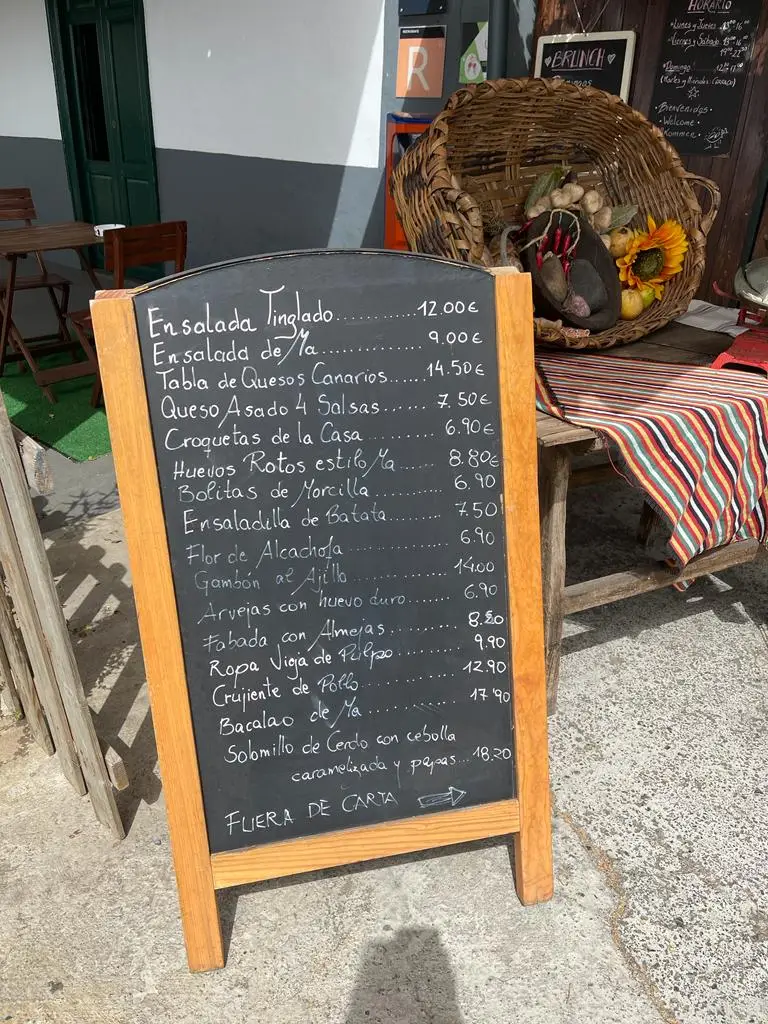 HORARIO
• Lunes y Jueves
BRUNCH
R
• Domingo
• Bienvenidos •
• Welcome •
Ensalada Tinglado............12.00€
Ensalada de Ma..............9.00€
Tabla de Quesos Canarios......14.50€
Queso Asado 4 Salsas......7.50€
Croquetas de la Casa..........6.90€
Huevos Rotos estilo Ma......8.80€
Bolitas de Morcilla..........6.90
Ensaladilla de Batata........7.50
Flor de Alcachofa............6.90
Gambón al Ajillo............14.00
Arvejas con huevo duro........6.90
Fabada con Almejas..........8.50
Ropa Vieja de Pulpo..........9.90
Crujiente de Pollo............12.90
Bacalao de Ma..............17.90
Solomillo de Cerdo con cebolla
caramelizada y papas...18.20
FUERA DE CARTA